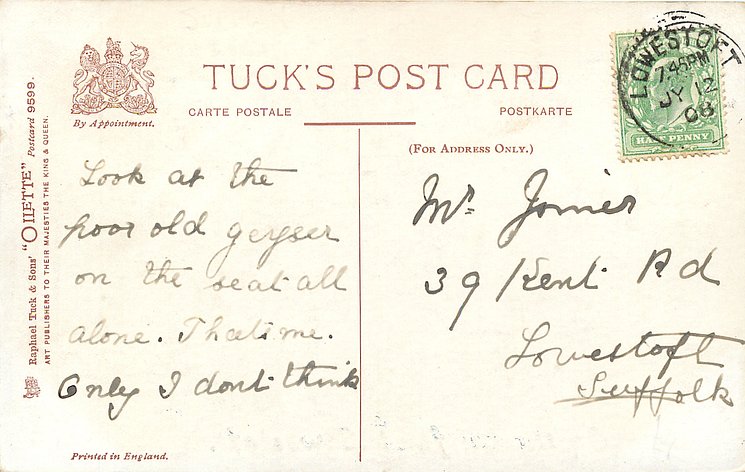 TUCK'S POST CARD
CARTE POSTALE
POSTKARTE
By Appointment.
(FOR ADDRESS ONLY.)
Raphael Tuck & Sons' "OILETTE" Postcard 9599.
ART PUBLISHERS TO THEIR MAJESTIES THE KING & QUEEN.
LOWESTOFT
7.45PM
JY 12
08
HALF PENNY
Look at the
poor old geyser
on the seat all
alone. Thats me.
Only I dont think
Mr
39 Kent Rd
Lowestoft
Suffolk
Printed in England.